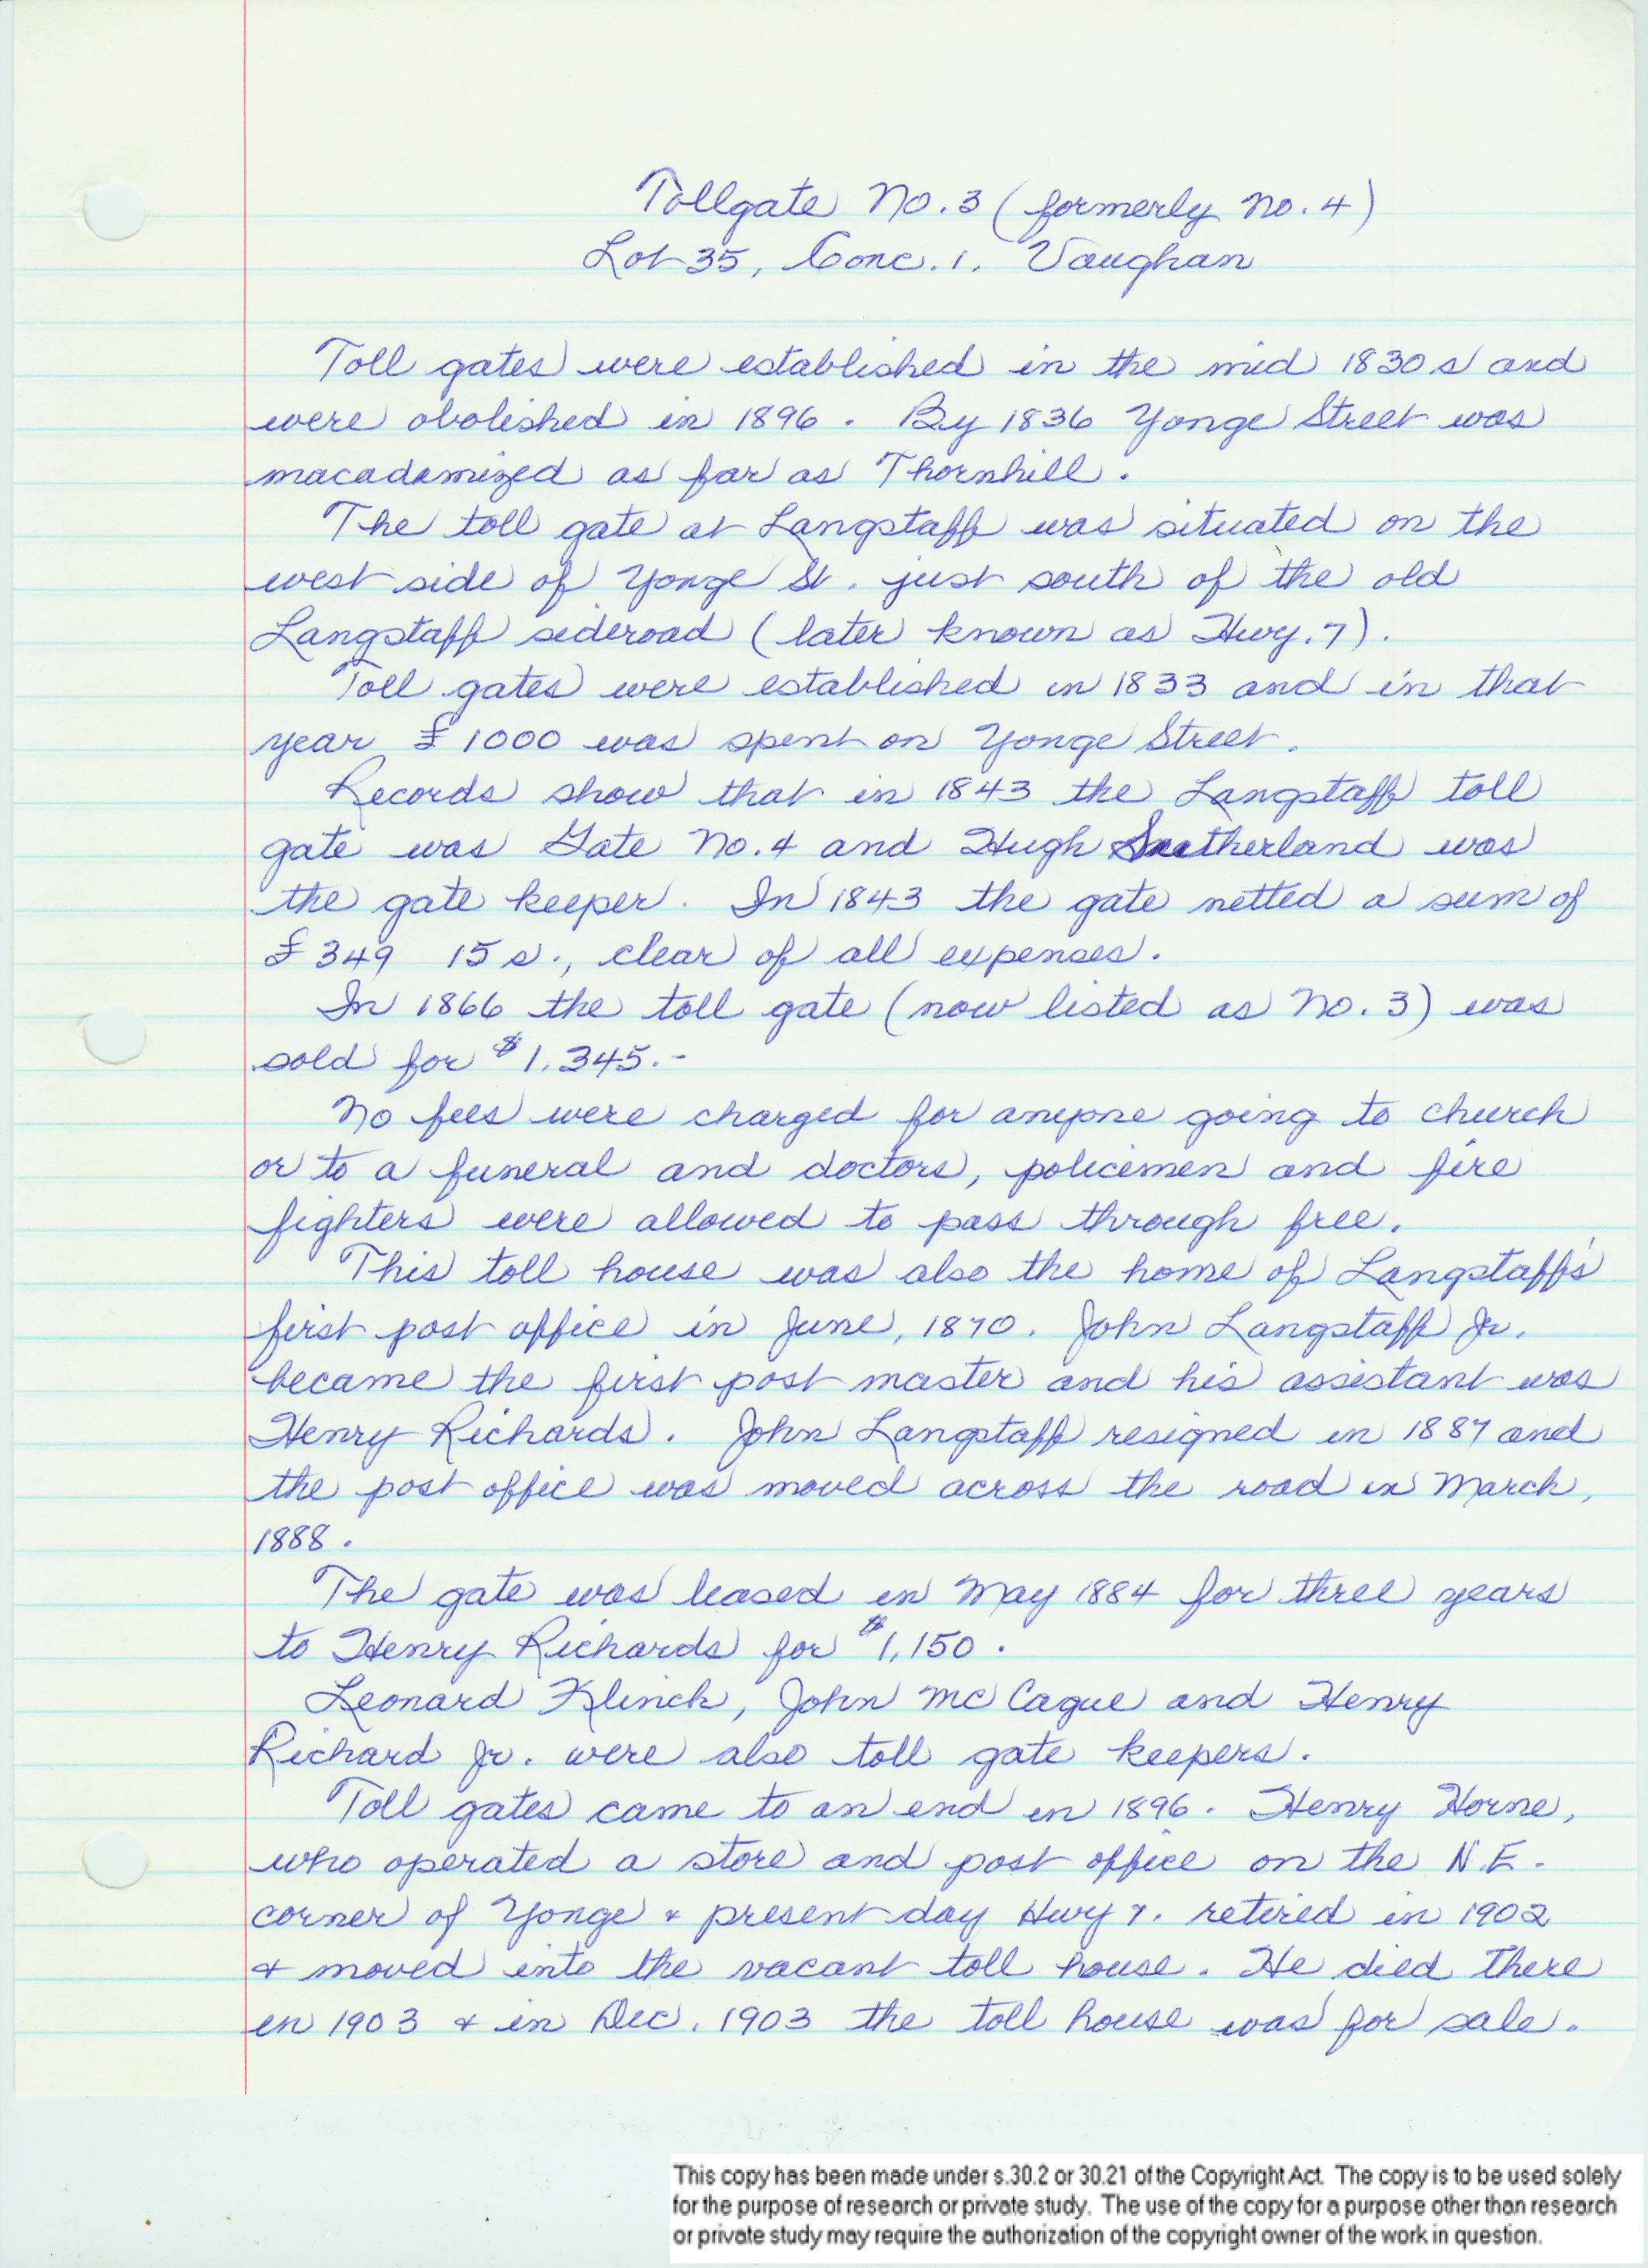 Tollgate No. 3 (formerly No. 4)
Lot 35, Conc. 1. Vaughan
Toll gates were established in the mid 1830s and
were abolished in 1896. By 1836 Yonge Street was
macadamized as far as Thornhill.
The toll gate at Langstaff was situated on the
west side of Yonge St. just south of the old
Langstaff sideroad (later known as Hwy. 7).
Toll gates were established in 1833 and in that
year £1000 was spent on Yonge Street.
Records show that in 1843 the Langstaff toll
gate was Gate No. 4 and Hugh Sutherland was
the gate keeper. In 1843 the gate netted a sum of
£349 15s., clear of all expenses.
In 1866 the toll gate (now listed as No. 3) was
sold for $1,345.-
No fees were charged for anyone going to church
or to a funeral and doctors, policemen and fire
fighters were allowed to pass through free.
This toll house was also the home of Langstaff's
first post office in June, 1870. John Langstaff Jr.
became the first post master and his assistant was
Henry Richards. John Langstaff resigned in 1887 and
the post office was moved across the road in March,
1888.
The gate was leased in May 1884 for three years
to Henry Richards for $1,150.
Leonard Klinck, John McCague and Henry
Richard Jr. were also toll gate keepers.
Toll gates came to an end in 1896. Henry Horne,
who operated a store and post office on the N.E.
corner of Yonge & present day Hwy 7. retired in 1902
& moved into the vacant toll house. He died there
in 1903 & in Dec. 1903 the toll house was for sale.
This copy has been made under s.30.2 or 30.21 of the Copyright Act. The copy is to be used solely
for the purpose of research or private study. The use of the copy for a purpose other than research
or private study may require the authorization of the copyright owner of the work in question.